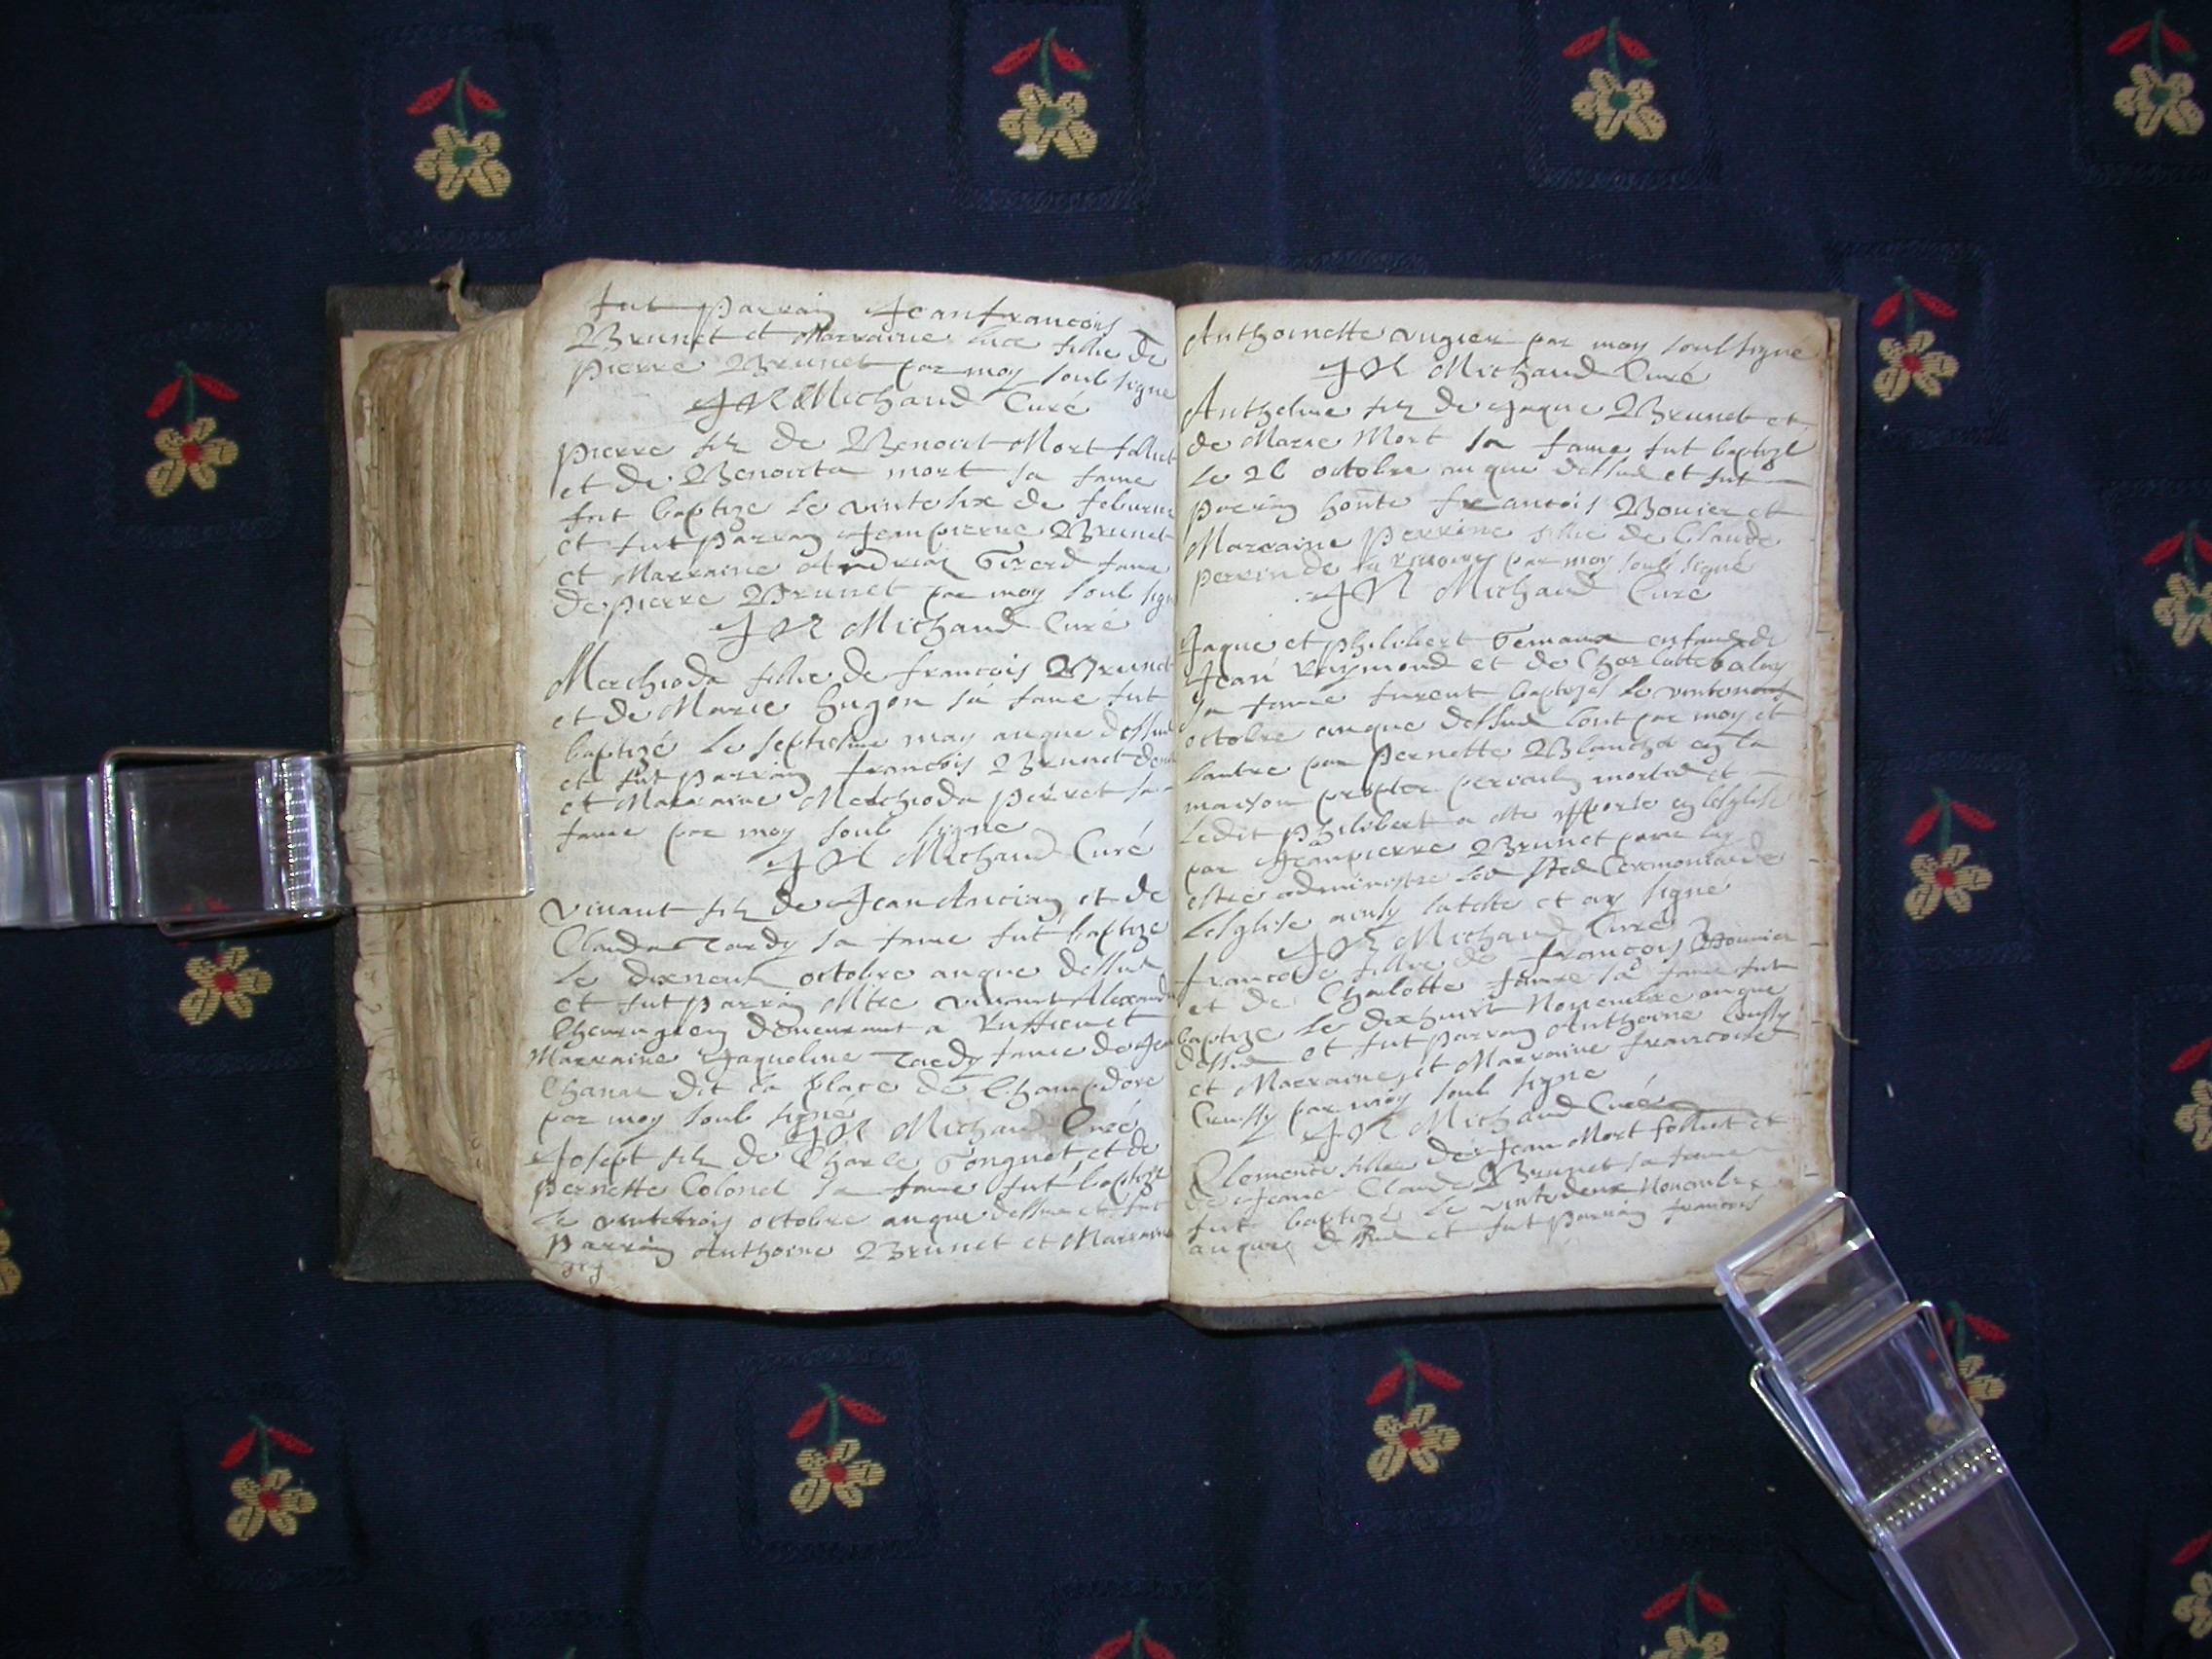 fut parrain Jeanfrancois
Brunet et Marraine luce fillie de
pierre Brunet par moy soub signe
JR Michaud Curé
pierre filz de Benoict Mort follliet
et de Benoicta mort sa fame
fut baptize le vinte six de feburie
et fut parrain Jeanpierre Brunet
et Marraine Girerd fame
de pierre Brunet par moy soub sign
JR Michaud Curé
Merchioda fillie de francois Brunet
et de Marie hugon sa fame fut
baptizé le septiesme may anque dessus
et fut parrain francois Brunet
et Marraine Merchioda perret sa
fame par moy soub signe
JR Michaud Curé
vivant filz de Jean Ancian et de
Clauda Tardy sa fame fut baptize
le dixneuf octobre anque dessus
et fut parrain Mtre vivant Alexand
Chirurgien demeurant a Ruffieu et
Marraine Jaqueline Tardy fame de Jea
Chanal dit la place de Champdore
par moy soub signé
JR Michaud Curé
Josept filz de Charle Gonguet et de
pernette Colonel sa fame fut baptize
le vintetrois octobre anque dessus et fut
parrain Anthoine Brunet et Marraine
Anthoinette vugier par moy soubsigne
JR Michaud Curé
Anthelme filz de Jaque Brunet et
de Marie Mort sa fame fut baptize
le 26 octobre anque dessus et fut
parrain honte francois Bouier et
Marraine perrine fillie de Claude
perrin de par moy soub signé
JR Michaud Cure
Jaque et philibert Gemaux enfans de
Jean Raymond et de Charlotte balay
sa fame furent baptizes le vinteneuf
octobre anque dessus l'ont par moy et
lautre par pernette Blanche en la
maison propter periculum mortis et
ledit philibert a este apporte en lesglise
par Jeanpierre Brunet pour luy
estre administre les stes Ceremonies de
lesglise ainsy lateste et ay signé
JR Michaud Curé
francoise fillie de francois Bounier
et de Charlotte famre sa fame fut
baptize le dixhuit Novembre anque
dessus et fut parrain Anthoine
et Marraine, et Marraine francoise
par moy soub signe
JR Michaud Curé
Clemence fillie de Jean Mort folliet et
de Jeane Claude Brunet sa fame
fut baptizé le vintedeux Novembre
anque dessus et fut parrain francois